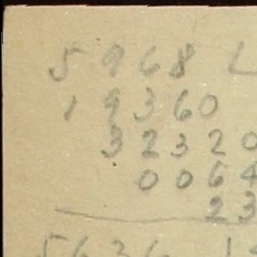 5 9 6 8
1 9 3 6 0
3 2 3 2 0
0 0 6 4
2 3
5 6 3 6